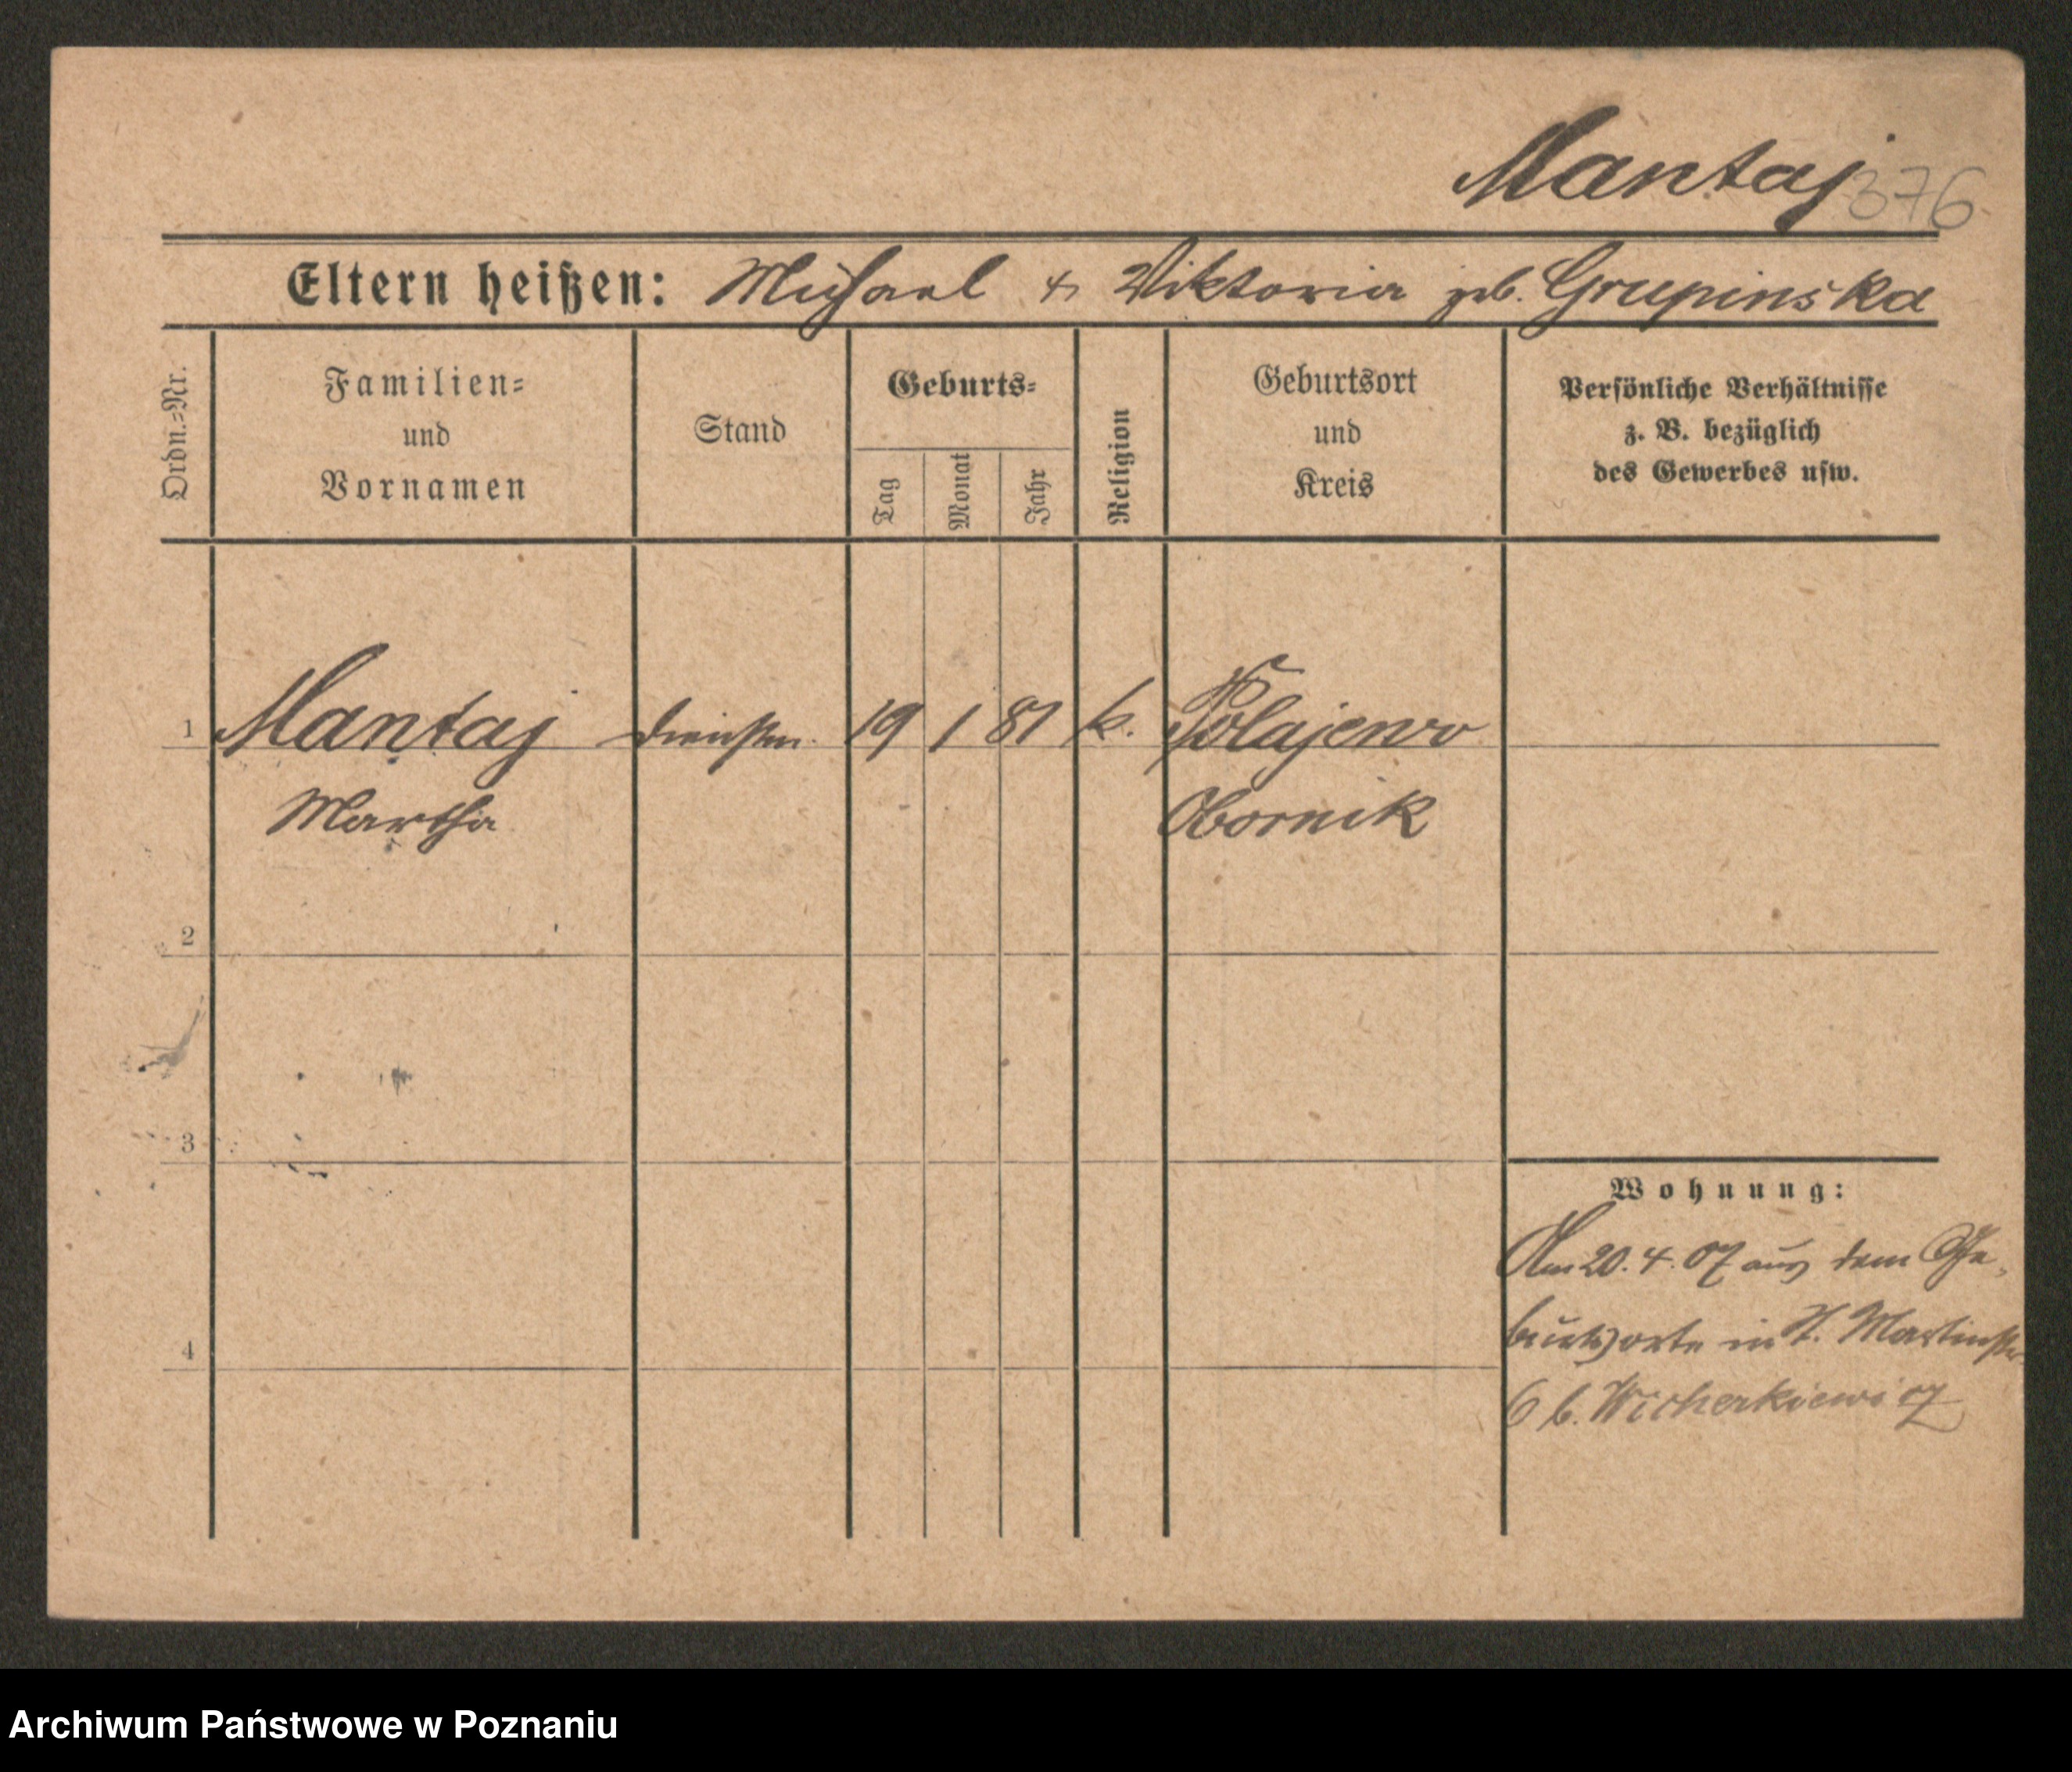 Mantaj 376
Eltern heißen: Michael & Viktoria geb. Grupinska
Ordn.-Nr.
Familien-
und
Vornamen
Stand
Geburts-
Tag
Monat
Jahr
Religion
Geburtsort
und
Kreis
Persönliche Verhältnisse
z. B. bezüglich
des Gewerbes usw.
1 Mantaj 19 1 81 k. Polajewo
Martha Obornik
2
3
4
Wohnung:
Am 20. 4. 07 aus dem Ge-
burtsorte in St. Martinstr.
6 b. Wicherkiewicz
Archiwum Państwowe w Poznaniu